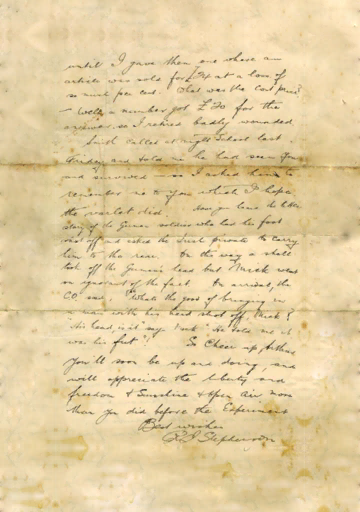 until I gave them one where an
article was sold for £ at a loss of
so much per cent. "What was the Cost price"
– Well, a number got £70 for the
answer so I retired badly wounded
Smith called at night School last
Friday and told me he had seen you
and survived — so I asked him to
remember me to you which I hope
the varlet did. Have you heard the
story of the German soldier who had his foot
shot off and asked the Irish private to carry
him to the rear. On the way a shell
took off the German's head but Mick went
on ignorant of the fact. On arrival, the
C.O. said. "What's the good of bringing in
a man with his head shot off, Mick?
"His head, is it" say Mick "He told me it
was his foot"! So Cheer up, Arthur
you'll soon be up and doing, and
will appreciate the liberty and
freedom & Sunshine & Open Air more
than you did before the Experiment
Best wishes
Stephenson